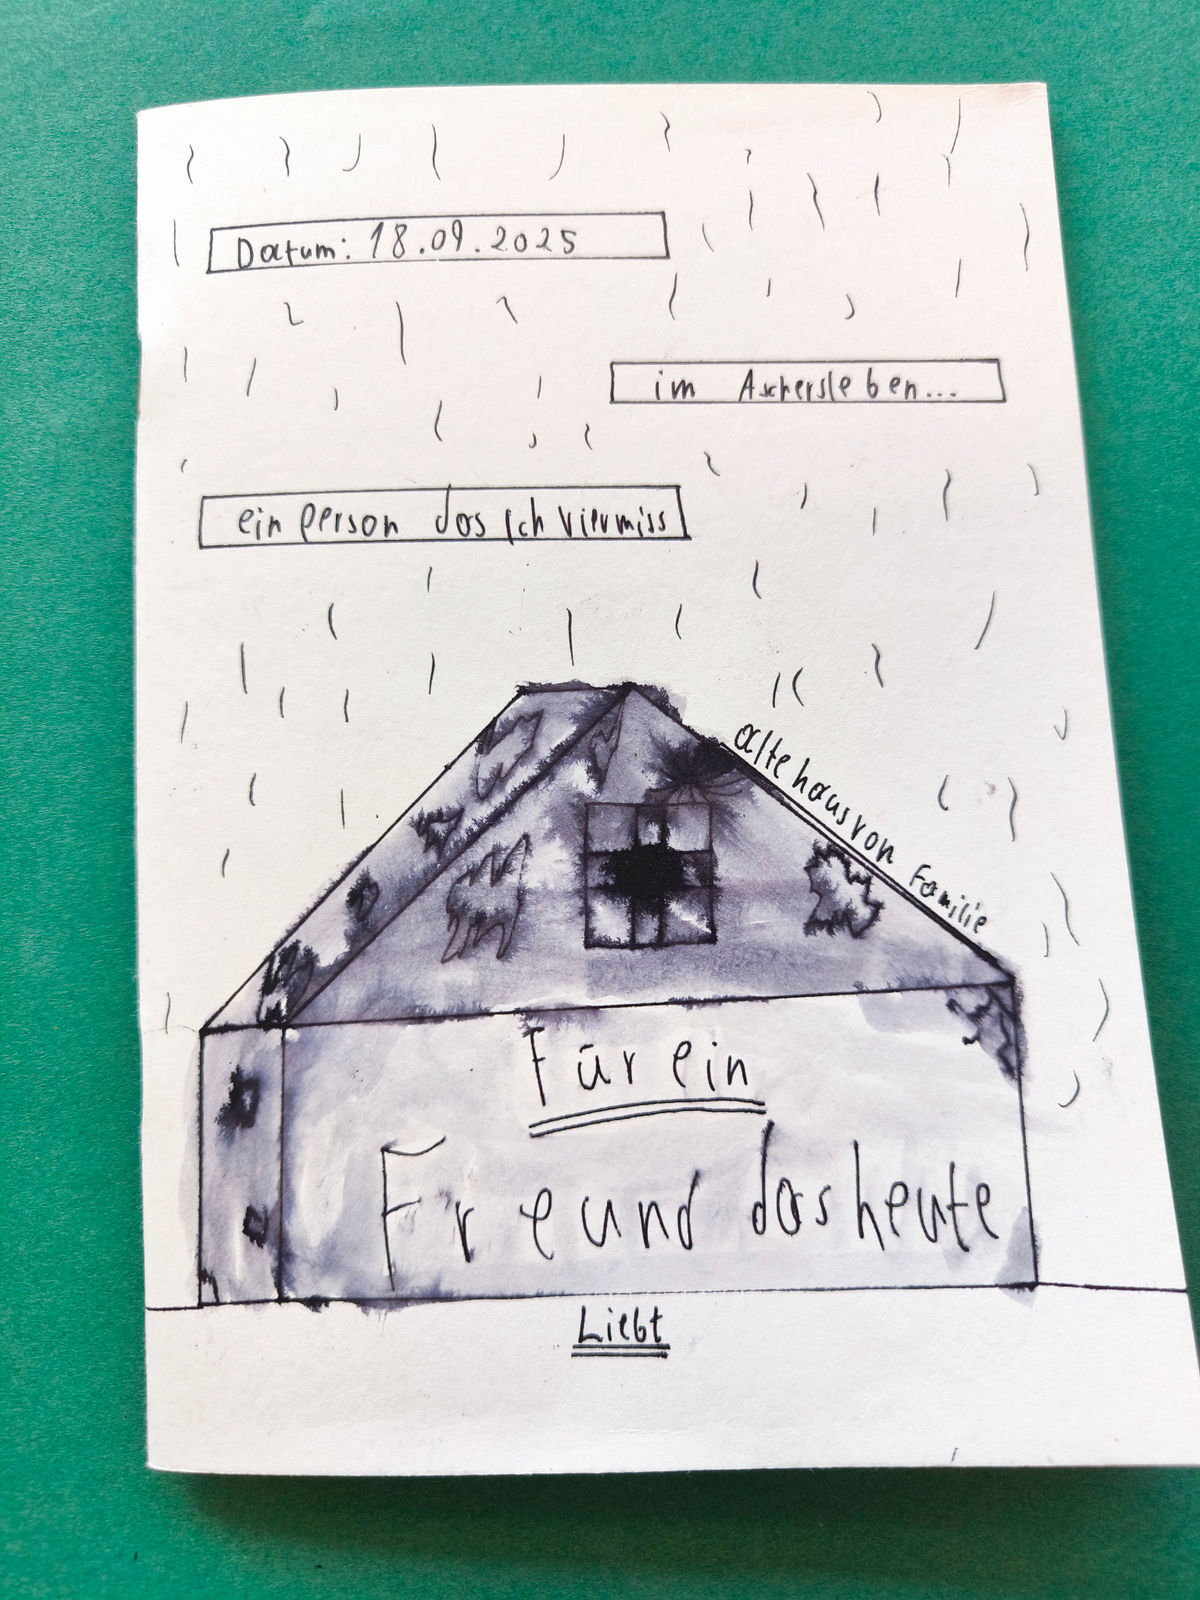 Datum: 18.09.2025
im Aschersleben...
ein person das ich viermiss
alte haus von Familie
Für ein
Freund das heute
Liebt